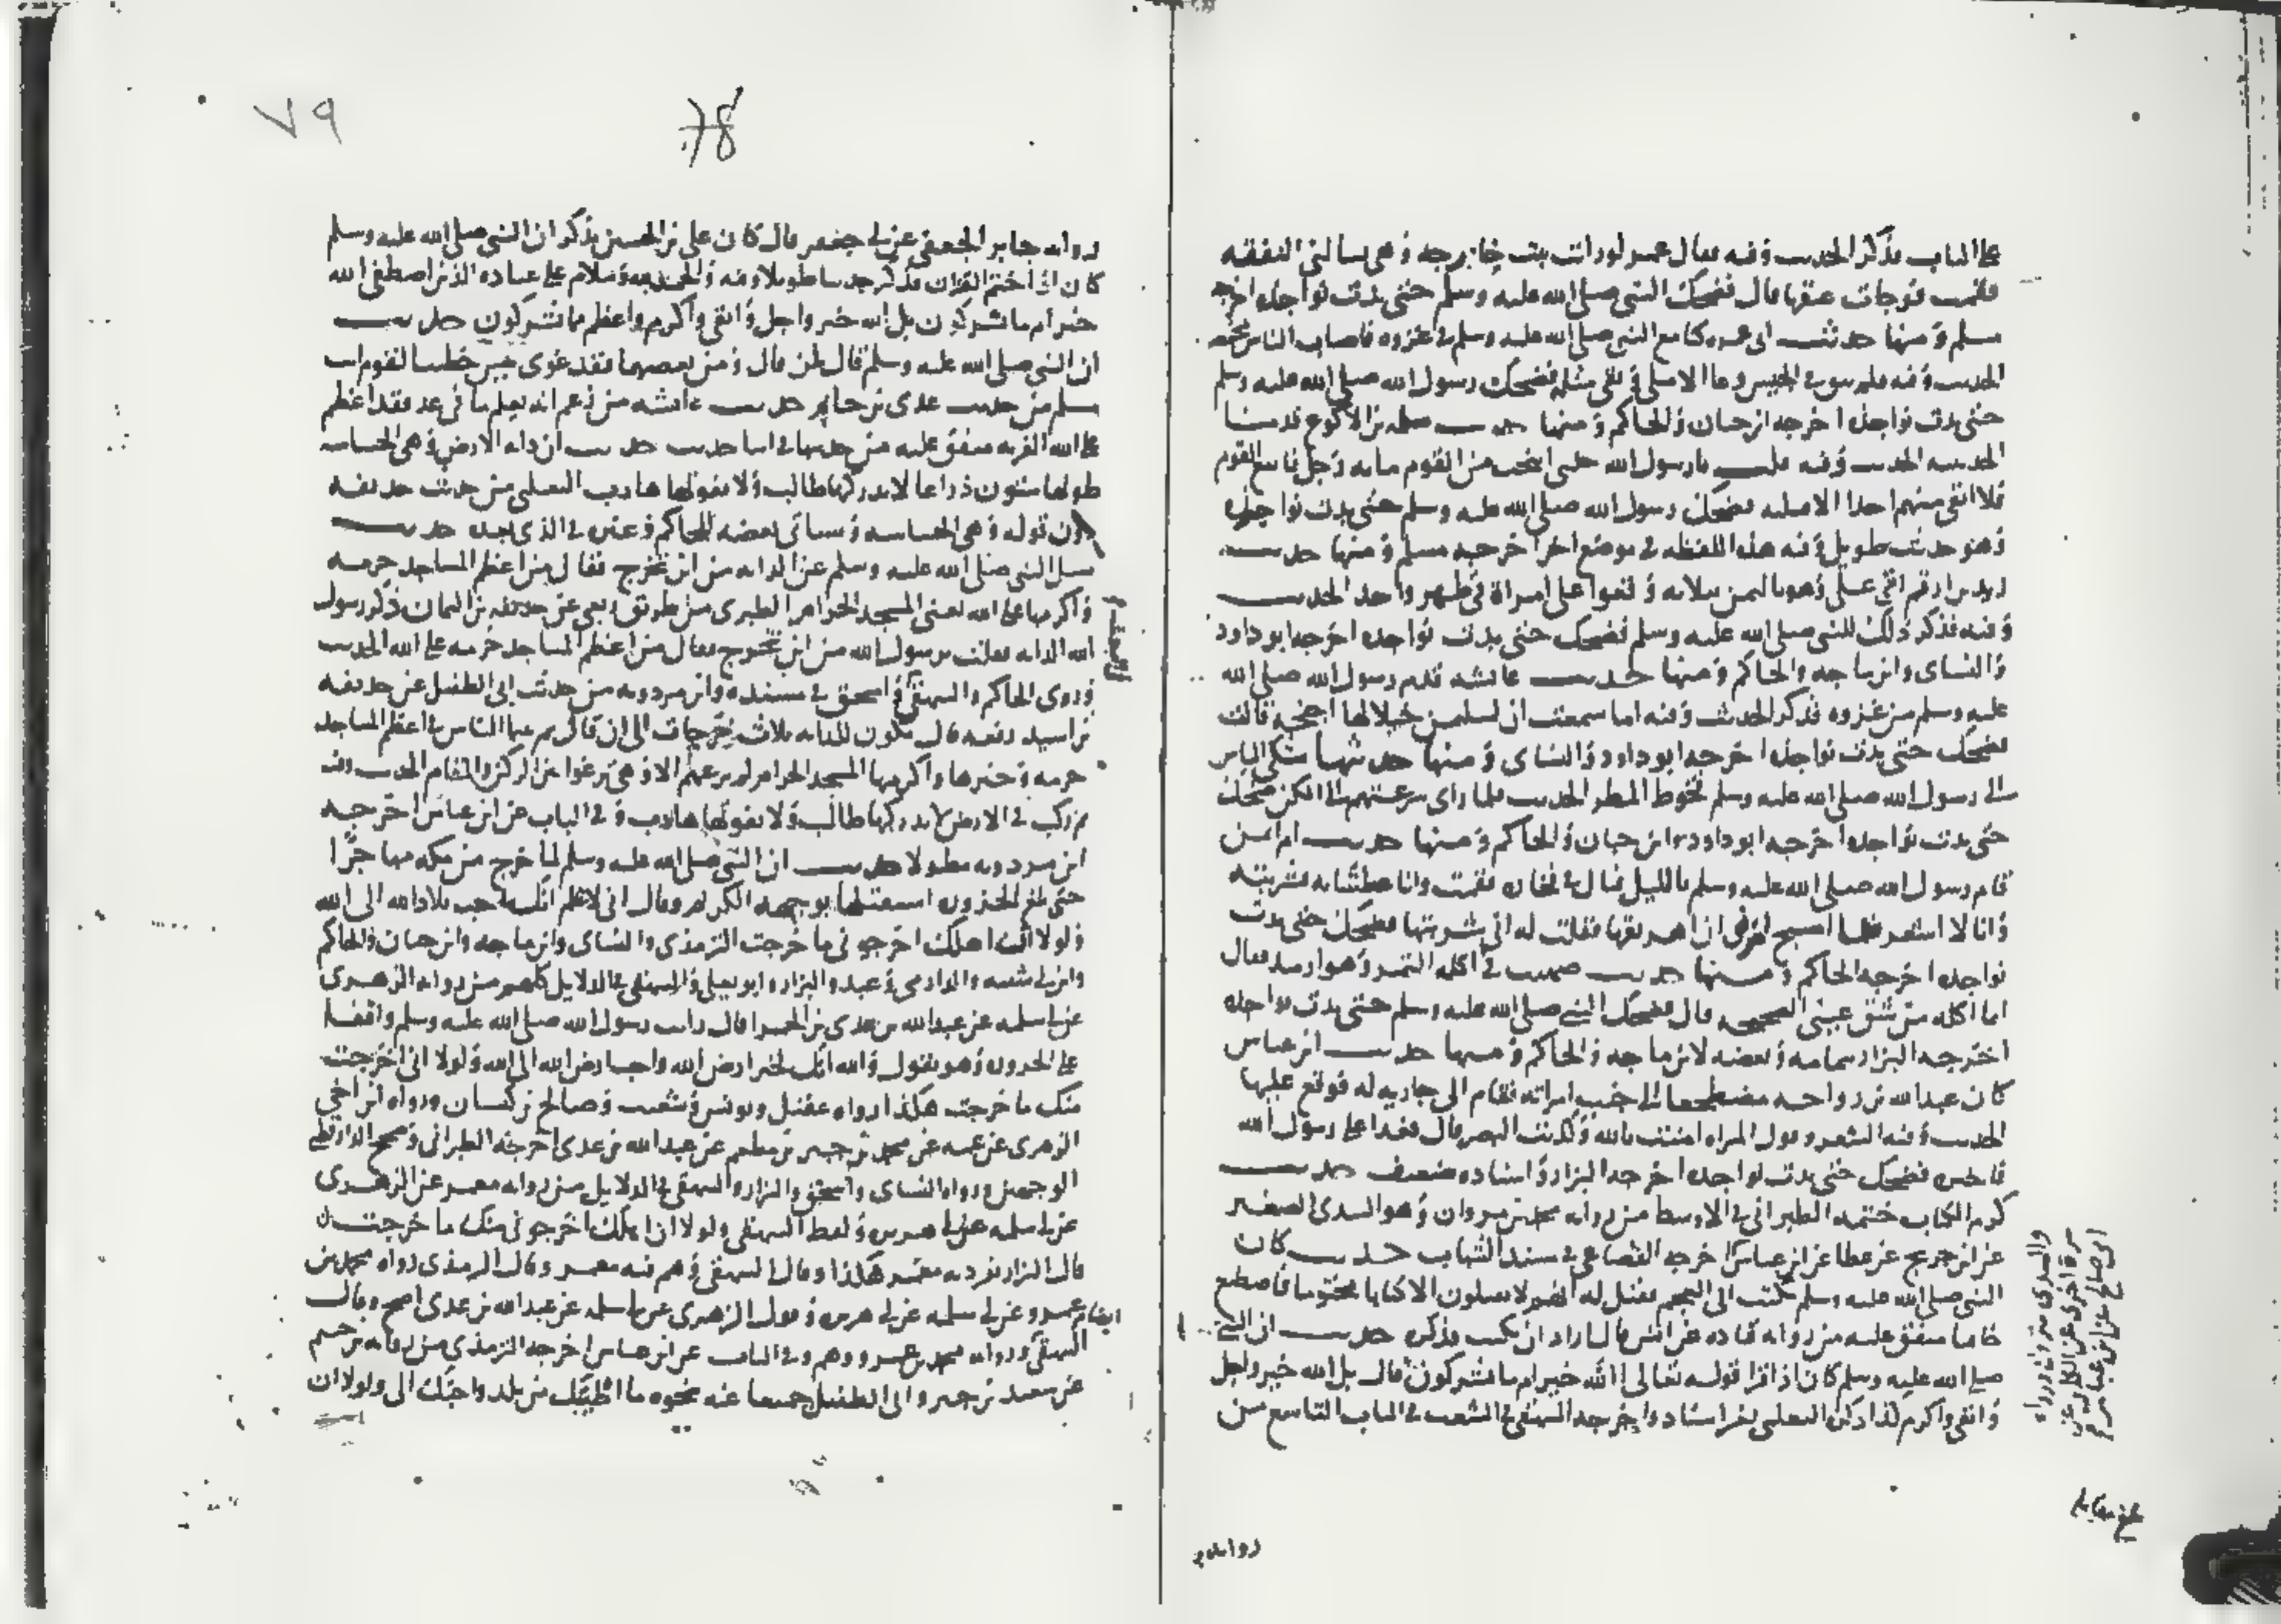 على الباب فذكر الحديث وفيه فقال عمر لو رايت بنت خارجه وهي تسالني النفقه
فقمت فوجات عنقها قال فضحك النبي صلى الله عليه وسلم حتى بدت نواجذه اخرجه
مسلم ومنها حديث ابي عمره كنا مع النبي صلى الله عليه وسلم في غزوه فاصاب الناس مخمصه
الحديث وفيه فلم يبق في الجيش وعا الا ملي وبقي مثله فضحك رسول الله صلى الله عليه وسلم
حتى بدت نواجذه اخرجه ابن حبان والحاكم ومنها حديث سلمه بن الاكوع قدمنا
الحديبيه الحديث وفيه قلت يا رسول الله خلني انتخب من القوم مايه رجل فاتبع القوم
فلا ابقي منهم احدا الا قتلته فضحك رسول الله صلى الله عليه وسلم حتى بدت نواجذه
وهو حديث طويل وفيه هذه اللفظه في موضع اخر اخرجه مسلم ومنها حديث
زيد بن ارقم اتي علي وهو باليمن بثلاثه وقعوا على امراة في طهر واحد الحديث
وفيه فذكر ذلك للنبي صلى الله عليه وسلم فضحك حتى بدت نواجذه اخرجه ابو داود
والنساي وابن ماجه والحاكم ومنها حديث عائشه قدم رسول الله صلى الله
عليه وسلم من غزوه فذكر الحديث وفيه اما سمعت ان لسليمن خيلا لها اجنحه قالت
فضحك حتى بدت نواجذه اخرجه ابو داود والنساي ومنها حديثها شكى الناس
الى رسول الله صلى الله عليه وسلم قحوط المطر الحديث فلما راى سرعتهم الى الكن ضحك
حتى بدت نواجذه اخرجه ابو داود وابن حبان والحاكم ومنها حديث ام ايمن
قام رسول الله صلى الله عليه وسلم بالليل فبال في فخاره فقمت وانا عطشانه فشربته
وانا لا اشعر فلما اصبح امرني ان اهريقها فقلت له اني شربتها فضحك حتى بدت
نواجذه اخرجه الحاكم ومنها حديث صهيب في اكله التمر وهو ارمد فقال
انما اكله من شق عيني الصحيحه قال فضحك النبي صلى الله عليه وسلم حتى بدت نواجذه
اخرجه البزار بتمامه وبعضه لابن ماجه والحاكم ومنها حديث ابن عباس
كان عبد الله بن رواحه مضطجعا الى جنب امراته فقام الى جاريه له فوقع عليها
الحديث وفيه الشعر وقول المراه امنت بالله وكذبت البصر قال فغدا على رسول الله
فاخبره فضحك حتى بدت نواجذه اخرجه البزار واسناده ضعيف حديث
كرم الكتاب ختمه الطبراني في الاوسط من روايه محمد بن مروان وهو السدي الصغير
عن ابن جريج عن عطا عن ابن عباس اخرجه القضاعي في مسند الشهاب حديث كان
النبي صلى الله عليه وسلم يكتب الى العجم فقيل له انهم لا يقبلون الا كتابا مختوما فاصطنع
خاتما متفق عليه من روايه قتاده عن انس قال لما اراد ان يكتب فذكره حديث ان النبي
صلى الله عليه وسلم كان اذا قرا قوله تعالى االله خير ام ما تشركون قال بل الله خير واجل
وابقى واكرم كذا ذكره الثعلبي بغير اسناد واخرجه البيهقي في الشعب في الباب التاسع من
والسدي متروك ورواه
مره اخرى عن الكلبي عن
ابي صالح عن ابن عباس
بلغ مقابله
روايه
٧٩
78
روايه جابر الجعفي عن ابي جعفر قال كان علي بن الحسين يذكر ان النبي صلى الله عليه وسلم
كان اذا ختم القران فذكر حديثا طويلا وفيه والحمد لله وسلام على عباده الذين اصطفى الله
خير ام ما تشركون بل الله خير واجل وابقى واكرم واعظم مما تشركون حديث
ان النبي صلى الله عليه وسلم قال لمن قال ومن يعصهما فقد غوى خطيب القوم انت
مسلم من حديث عدي بن حاتم حديث عائشه من زعم انه يعلم ما في غد فقد اعظم
على الله الفريه متفق عليه من حديثها في اثنا حديث حديث ان دابه الارض وهي الجساسه
طولها ستون ذراعا لا يدركها طالب ولا يفوتها هارب الثعلبي من حديث حذيفه
دون قوله وهي الجساسه وسياتي بعضه للحاكم وغيره في الذي بعده حديث
سيل النبي صلى الله عليه وسلم عن الدابه من اين تخرج فقال من اعظم المساجد حرمه
واكرمها على الله يعني المسجد الحرام الطبري من طريق ربعي عن حذيفه بن اليمان ذكر رسول
الله الدابه فقلت يا رسول الله من اين تخرج فقال من اعظم المساجد حرمه على الله الحديث
وروى الحاكم والبيهقي واسحق في مسنده وابن مردويه من حديث ابي الطفيل عن حذيفه
بن اسيد رفعه قال تكون للدابه ثلاث خرجات الى ان قال ثم بينما الناس في اعظم المساجد
حرمه وخيرها واكرمها المسجد الحرام لم يرعهم الا وهي ترغوا بين الركن والمقام الحديث وفيه
ثم تركب في الارض لا يدركها طالب ولا يفوتها هارب وفي الباب عن ابن عباس اخرجه
ابن مردويه مطولا حديث ان النبي صلى الله عليه وسلم لما خرج من مكه مهاجرا
حتى بلغ الحزوره استقبلها بوجهه الكريم وقال اني لاعلم انك احب بلاد الله الى الله
ولولا ان اهلك اخرجوني ما خرجت الترمذي والنساي وابن ماجه وابن حبان والحاكم
وابن ابي شيبه والدارمي وعبد والبزار وابو يعلى والبيهقي في الدلايل كلهم من روايه الزهري
عن ابي سلمه عن عبد الله بن عدي بن الحمرا قال رايت رسول الله صلى الله عليه وسلم واقفا
على الحزوره وهو يقول والله انك لخير ارض الله واحب ارض الله الى الله ولولا اني اخرجت
منك ما خرجت هكذا رواه عقيل ويونس وشعيب وصالح بن كيسان ورواه ابن اخي
الزهري عن عمه عن محمد بن جبير بن مطعم عن عبد الله بن عدي اخرجه الطبراني وصحح الدارقطني
الوجهين ورواه النساي واسحق والبزار والبيهقي في الدلايل من روايه معمر عن الزهري
عن ابي سلمه عن ابي هريره ولفظ البيهقي ولولا ان اهلك اخرجوني منك ما خرجت
قال البزار تفرد به معمر هكذا وقال البيهقي وهم فيه معمر وقال الترمذي رواه محمد بن
عمرو عن ابي سلمه عن ابي هريره وقول الزهري عن ابي سلمه عن عبد الله بن عدي اصح وقال
البيهقي وروايه محمد بن عمرو وهم وفي الباب عن ابن عباس اخرجه الترمذي من روايه بن خثيم
عن سعيد بن جبير وابي الطفيل جميعا عنه بنحوه ما اطيبك من بلد واحبك الى ولولا ان